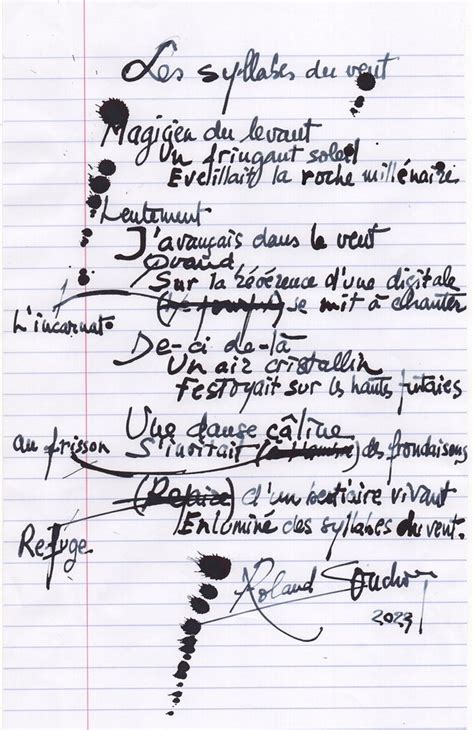 Les syllabes du vent
Magicien du levant
Un fringant soleil
Eveillait la roche millénaire
Lentement
J'avançais dans le vent
Quand
Sur la révérence d'une digitale
se mit à chanter
L'incarnat
De-ci de-là
Un air cristallin
Festoyait sur les hauts futaies
Une danse câline
au frisson S'invitait des frondaisons
(Repaire) d'un bestiaire vivant
Enluminé des syllabes du vent.
Refuge
Roland
2023